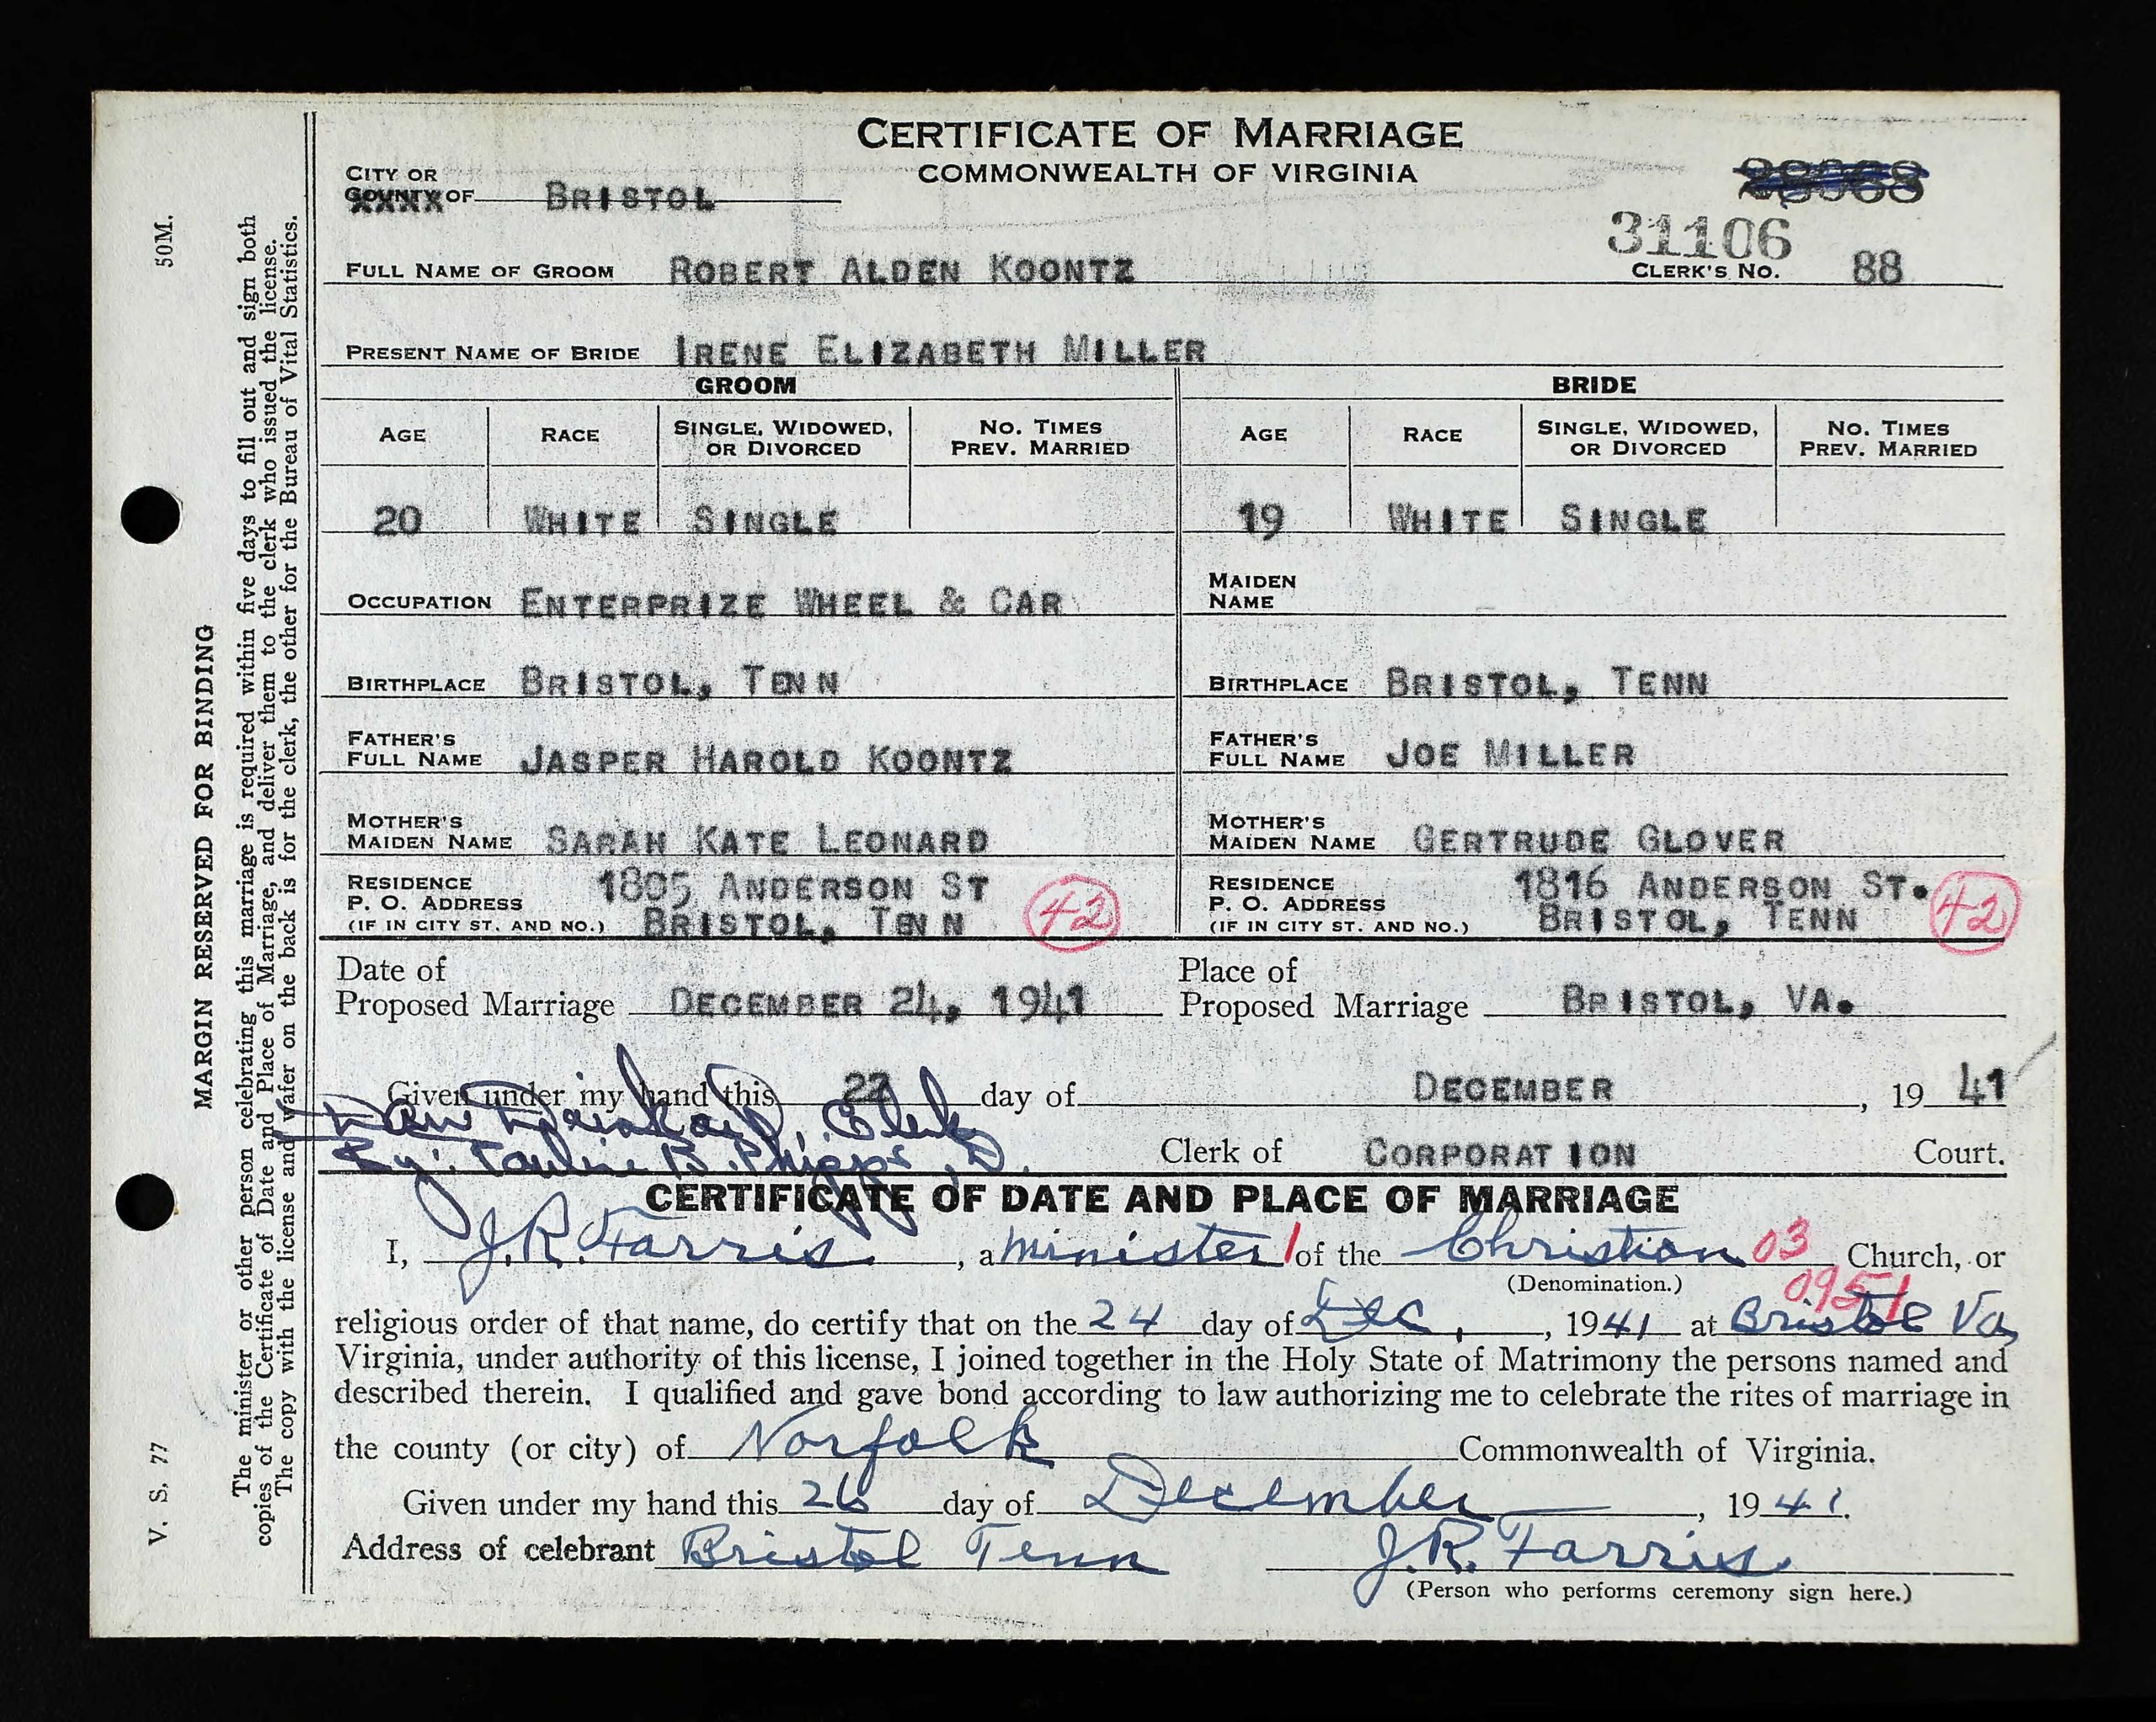 CERTIFICATE OF MARRIAGE
COMMONWEALTH OF VIRGINIA
CITY OR
COUNTY OF BRISTOL
31106
FULL NAME OF GROOM ROBERT ALDEN KOONTZ CLERK'S NO. 88
PRESENT NAME OF BRIDE IRENE ELIZABETH MILLER
GROOM BRIDE
AGE RACE SINGLE, WIDOWED, OR DIVORCED NO. TIMES PREV. MARRIED AGE RACE SINGLE, WIDOWED, OR DIVORCED NO. TIMES PREV. MARRIED
20 WHITE SINGLE 19 WHITE SINGLE
OCCUPATION ENTERPRIZE WHEEL & CAR MAIDEN NAME
BIRTHPLACE BRISTOL, TENN BIRTHPLACE BRISTOL, TENN
FATHER'S FULL NAME JASPER HAROLD KOONTZ FATHER'S FULL NAME JOE MILLER
MOTHER'S MAIDEN NAME SARAH KATE LEONARD MOTHER'S MAIDEN NAME GERTRUDE GLOVER
RESIDENCE 1805 ANDERSON ST RESIDENCE 1816 ANDERSON ST.
P. O. ADDRESS 42 P. O. ADDRESS 42
(IF IN CITY ST. AND NO.) BRISTOL, TENN (IF IN CITY ST. AND NO.) BRISTOL, TENN
Date of Place of
Proposed Marriage DECEMBER 24, 1941 Proposed Marriage BRISTOL, VA.
Given under my hand this 22 day of DECEMBER, 1941
Clerk
By: Pauline B. Phipps, D. Clerk of CORPORATION Court.
CERTIFICATE OF DATE AND PLACE OF MARRIAGE
I, J.R. Farris, a minister 1 of the Christian 03 Church, or
(Denomination.) 0951
religious order of that name, do certify that on the 24 day of Dec, 1941 at Bristol Va
Virginia, under authority of this license, I joined together in the Holy State of Matrimony the persons named and
described therein. I qualified and gave bond according to law authorizing me to celebrate the rites of marriage in
the county (or city) of Norfolk Commonwealth of Virginia.
Given under my hand this 26 day of December, 1941.
Address of celebrant Bristol Tenn J.R. Farris
(Person who performs ceremony sign here.)
V. S. 77 50M.
MARGIN RESERVED FOR BINDING
The minister or other person celebrating this marriage is required within five days to fill out and sign both
copies of the Certificate of Date and Place of Marriage, and deliver them to the clerk who issued the license.
The copy with the license and wafer on the back is for the clerk, the other for the Bureau of Vital Statistics.